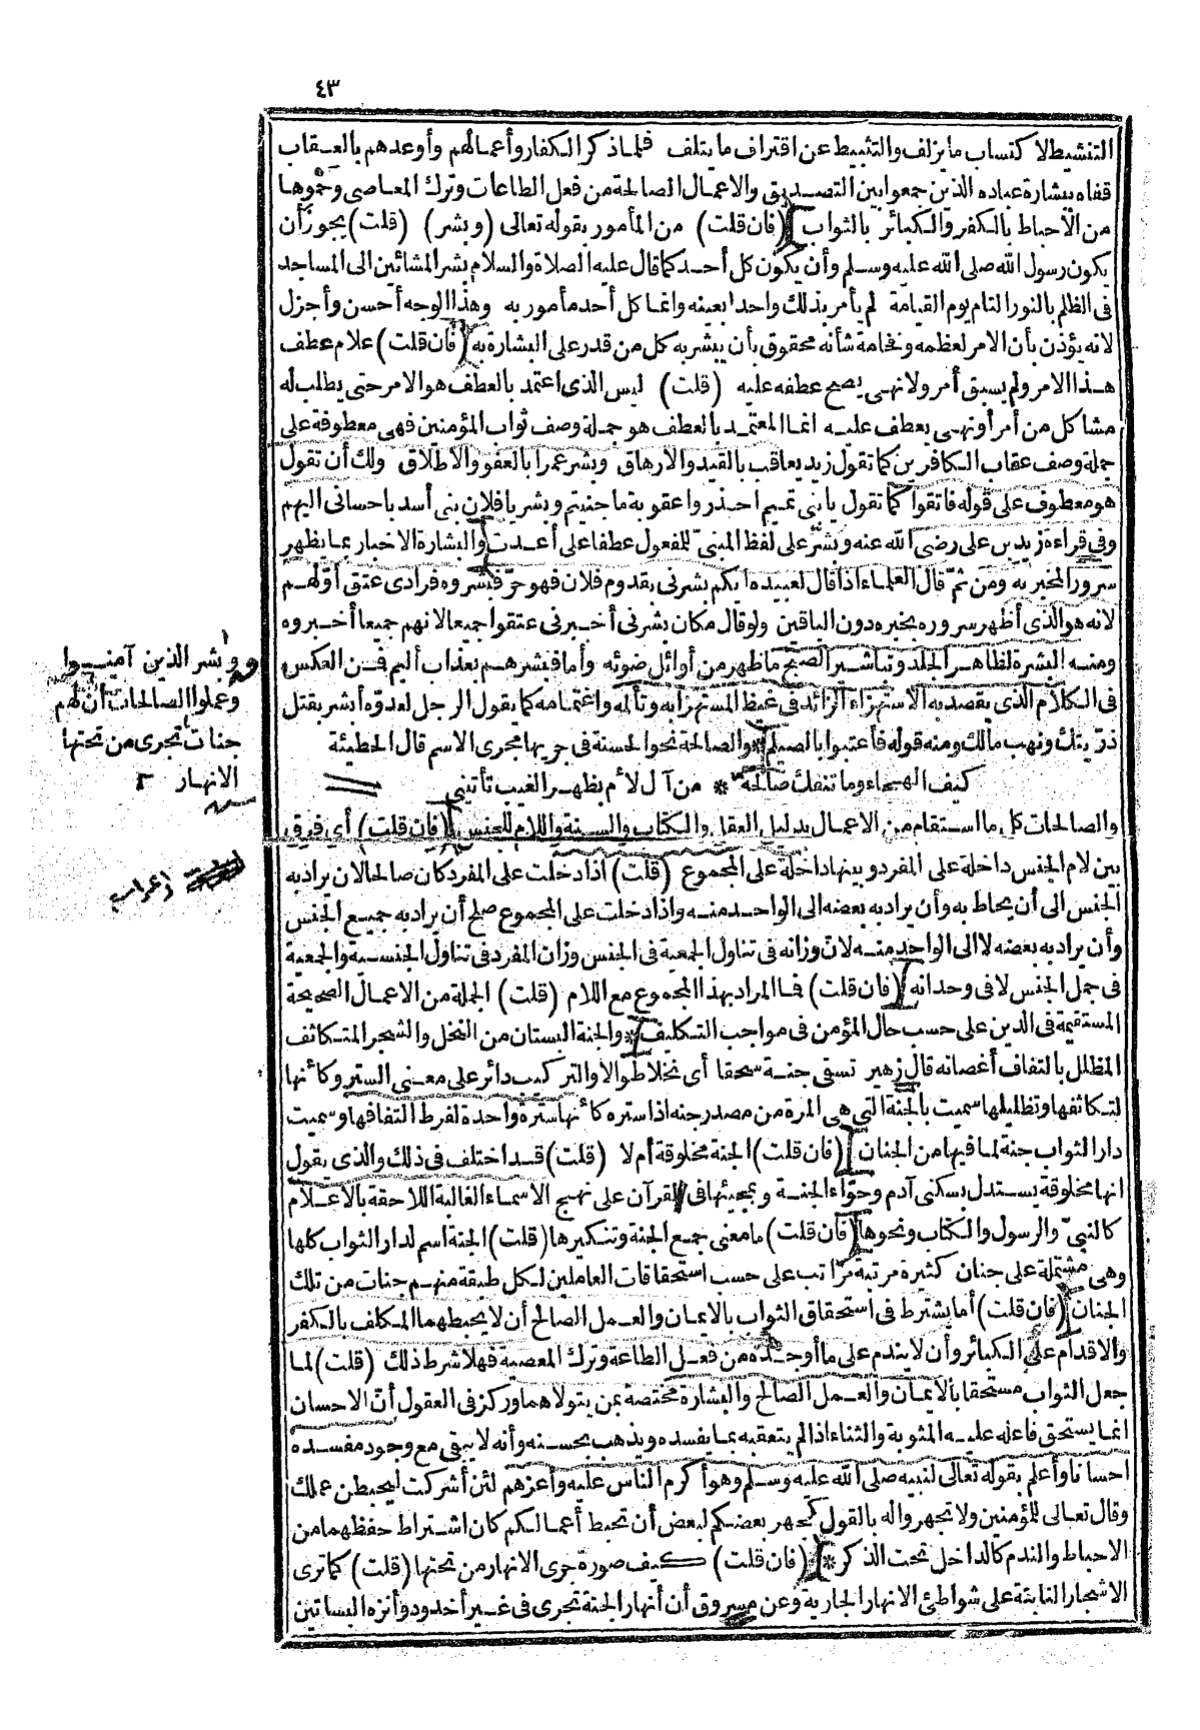 ٤٣
التنشيط لاكتساب ما يزلف والتثبيط عن اقتراف ما يتلف فلما ذكر الكفار وأعمالهم وأوعدهم بالعقاب
قفاه ببشارة عباده الذين جمعوا بين التصديق والاعمال الصالحة من فعل الطاعات وترك المعاصى وحموها
من الاحباط بالكفر والكبائر بالثواب (فان قلت) من المأمور بقوله تعالى (وبشر) (قلت) يجوز أن
يكون رسول الله صلى الله عليه وسلم وأن يكون كل أحد كما قال عليه الصلاة والسلام بشر المشائين الى المساجد
فى الظلم بالنور التام يوم القيامة لم يأمر بذلك واحدا بعينه وانما كل أحد مأمور به وهذا الوجه أحسن وأجزل
لانه يؤذن بأن الامر لعظمه وفخامة شأنه محقوق بأن يبشر به كل من قدر على البشارة به (فان قلت) علام عطف
هذا الامر ولم يسبق أمر ولا نهى يصح عطفه عليه (قلت) ليس الذى اعتمد بالعطف هو الامر حتى يطلب له
مشاكل من أمر أو نهى يعطف عليه انما المعتمد بالعطف هو جملة وصف ثواب المؤمنين فهى معطوفة على
جملة وصف عقاب الكافرين كما تقول زيد يعاقب بالقيد والارهاق وبشر عمرا بالعفو والاطلاق ولك أن تقول
هو معطوف على قوله فاتقوا كما تقول يا بنى تميم احذروا عقوبة ما جنيتم وبشر يا فلان بنى أسد باحسانى اليهم
وفى قراءة زيد بن على رضى الله عنه وبشر على لفظ المبنى للمفعول عطفا على أعدت والبشارة الاخبار بما يظهر
سرور المخبر به ومن ثم قال العلماء اذا قال لعبيده أيكم بشرنى بقدوم فلان فهو حر فبشروه فرادى عتق أولهم
لانه هو الذى أظهر سروره بخبره دون الباقين ولو قال مكان بشرنى أخبرنى عتقوا جميعا لانهم جميعا أخبروه
ومنه البشرة لظاهر الجلد وتباشير الصبح ما ظهر من أوائل ضوئه وأما فبشرهم بعذاب أليم فمن العكس
فى الكلام الذى يقصد به الاستهزاء الزائد فى غيظ المستهزأ به وتألمه واغتمامه كما يقول الرجل لعدوه أبشر بقتل
ذريتك ونهب مالك ومنه قوله فأعتبوا بالصيلم * والصالحة نحو الحسنة فى جريها مجرى الاسم قال الحطيئة
كيف الهجاء وما تنفك صالحة * من آل لأم بظهر الغيب تأتينى
والصالحات كل ما استقام من الاعمال بدليل العقل والكتاب والسنة واللام للجنس (فان قلت) أى فرق
بين لام الجنس داخلة على المفرد وبينها داخلة على المجموع (قلت) اذا دخلت على المفرد كان صالحا لان يراد به
الجنس الى أن يحاط به وأن يراد به بعضه الى الواحد منه واذا دخلت على المجموع صلح أن يراد به جميع الجنس
وأن يراد به بعضه لا الى الواحد منه لان وزانه فى تناول الجمعية فى الجنس وزان المفرد فى تناول الجنسية والجمعية
فى جمل الجنس لا فى وحدانه (فان قلت) فما المراد بهذا المجموع مع اللام (قلت) الجملة من الاعمال الصحيحة
المستقيمة فى الدين على حسب حال المؤمن فى مواجب التكليف * والجنة البستان من النخل والشجر المتكاثف
المظلل بالتفاف أغصانه قال زهير تسقى جنة سحقا أى نخلا طوالا والتركيب دائر على معنى الستر وكأنها
لتكاثفها وتظليلها سميت بالجنة التى هى المرة من مصدر جنه اذا ستره كأنها سترة واحدة لفرط التفافها وسميت
دار الثواب جنة لما فيها من الجنان (فان قلت) الجنة مخلوقة أم لا (قلت) قد اختلف فى ذلك والذى يقول
انها مخلوقة يستدل بسكنى آدم وحواء الجنة وبمجيئها فى القرآن على نهج الاسماء الغالبة اللاحقة بالاعلام
كالنبى والرسول والكتاب ونحوها (فان قلت) ما معنى جمع الجنة وتنكيرها (قلت) الجنة اسم لدار الثواب كلها
وهى مشتملة على جنان كثيرة مرتبة مراتب على حسب استحقاقات العاملين لكل طبقة منهم جنات من تلك
الجنان (فان قلت) أما يشترط فى استحقاق الثواب بالايمان والعمل الصالح أن لا يحبطهما المكلف بالكفر
والاقدام على الكبائر وأن لا يندم على ما أوجده من فعل الطاعة وترك المعصية فهلا شرط ذلك (قلت) لما
جعل الثواب مستحقا بالايمان والعمل الصالح والبشارة مختصة بمن يتولاهما وركز فى العقول أن الاحسان
انما يستحق فاعله عليه المثوبة والثناء اذا لم يتعقبه بما يفسده ويذهب بحسنه وأنه لا يبقى مع وجود مفسده
احسانا وأعلم بقوله تعالى لنبيه صلى الله عليه وسلم وهو أكرم الناس عليه وأعزهم لئن أشركت ليحبطن عملك
وقال تعالى للمؤمنين ولا تجهروا له بالقول كجهر بعضكم لبعض أن تحبط أعمالكم كان اشتراط حفظهما من
الاحباط والندم كالداخل تحت الذكر * (فان قلت) كيف صورة جرى الانهار من تحتها (قلت) كما ترى
الاشجار النابتة على شواطئ الانهار الجارية وعن مسروق أن أنهار الجنة تجرى فى غير أخدود وأنزه البساتين
وبشر الذين آمنوا
وعملوا الصالحات أن لهم
جنات تجرى من تحتها
الانهار
اعراب